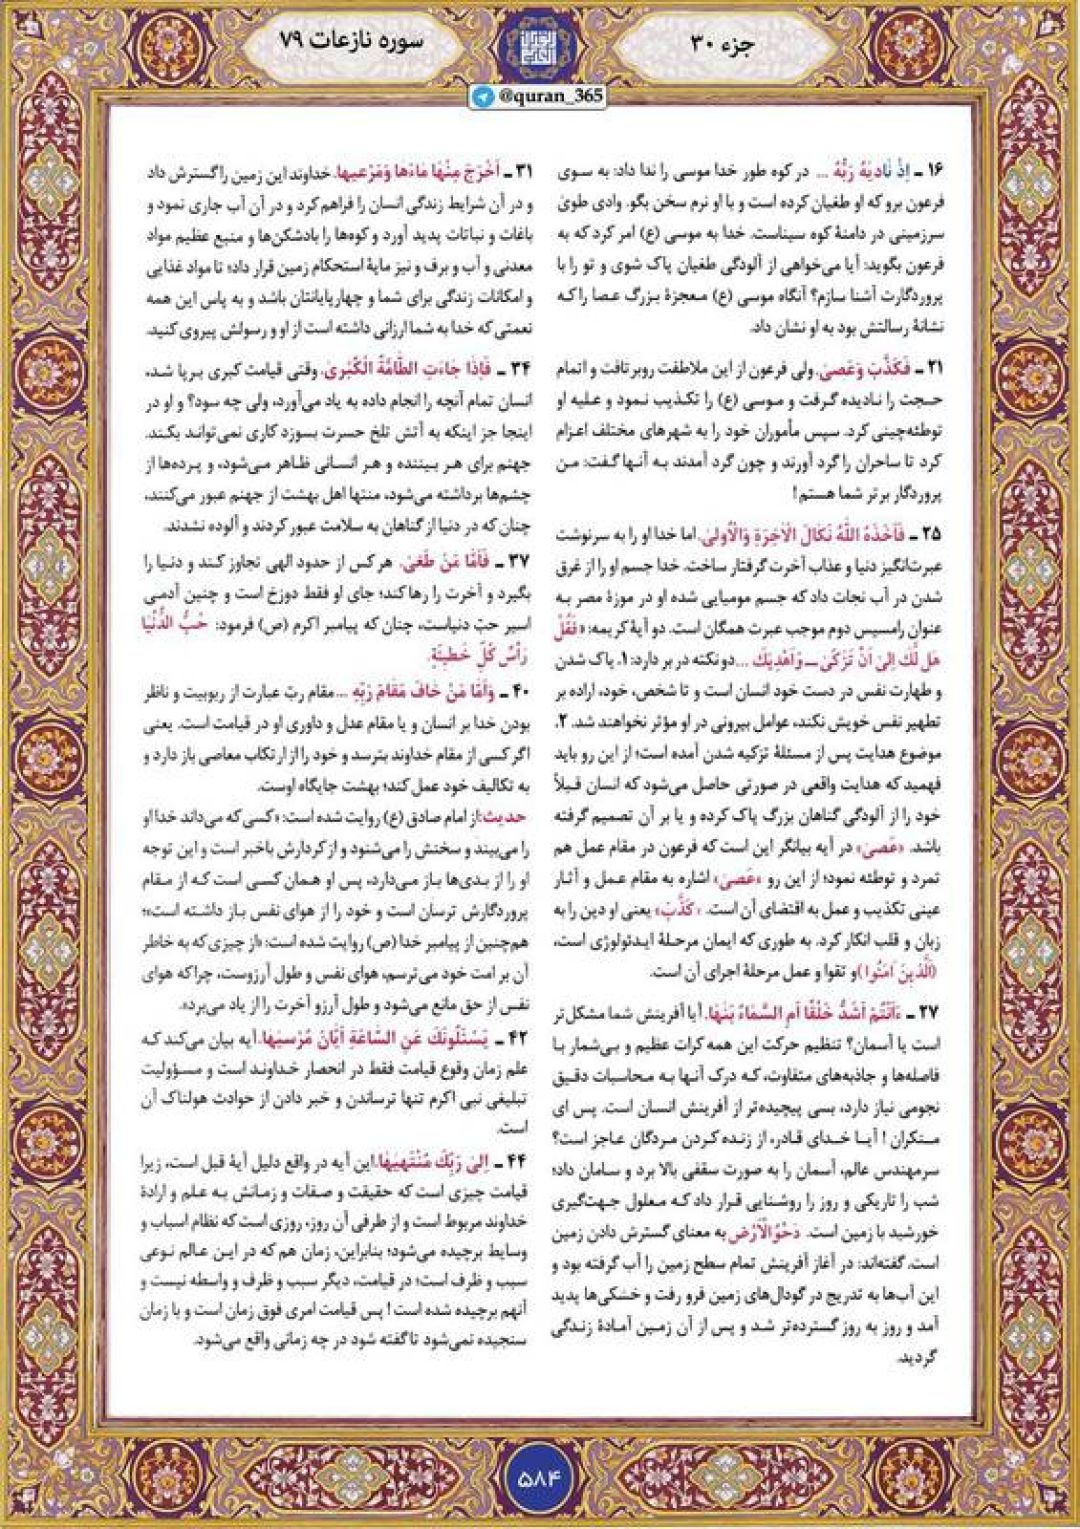 جزء ۳۰
سوره نازعات ۷۹
@quran_365
۱۶ ـ اِذْ نَادٰیهُ رَبُّهُ ... در کوه طور خدا موسی را ندا داد: به سوی
فرعون برو که او طغیان کرده است و با او نرم سخن بگو. وادی طویٰ
سرزمینی در دامنهٔ کوه سیناست. خدا به موسی (ع) امر کرد که به
فرعون بگوید: آیا می‌خواهی از آلودگی طغیان پاک شوی و تو را با
پروردگارت آشنا سازم؟ آنگاه موسی (ع) معجزهٔ بزرگ عصا را که
نشانهٔ رسالتش بود به او نشان داد.
۲۱ ـ فَكَذَّبَ وَعَصىٰ. ولی فرعون از این ملاطفت روبرتافت و اتمام
حجت را نادیده گرفت و موسی (ع) را تکذیب نمود و علیه او
توطئه‌چینی کرد. سپس مأموران خود را به شهرهای مختلف اعزام
کرد تا ساحران را گرد آورند و چون گرد آمدند به آنها گفت: من
پروردگار برتر شما هستم!
۲۵ ـ فَاَخَذَهُ اللّٰهُ نَكَالَ الْاٰخِرَةِ وَالْاُولىٰ. اما خدا او را به سرنوشت
عبرت‌انگیز دنیا و عذاب آخرت گرفتار ساخت. خدا جسم او را از غرق
شدن در آب نجات داد که جسم مومیایی شده او در موزهٔ مصر به
عنوان رامسیس دوم موجب عبرت همگان است. دو آیهٔ کریمه: «فَقُلْ
هَل لَّكَ اِلىٰ اَنْ تَزَكّىٰ ـ وَاَهْدِیَكَ ... دو نکته در بر دارد: ۱. پاک شدن
و طهارت نفس در دست خود انسان است و تا شخص، خود، اراده بر
تطهیر نفس خویش نکند، عوامل بیرونی در او مؤثر نخواهند شد. ۲.
موضوع هدایت پس از مسئلهٔ تزکیه شدن آمده است؛ از این رو باید
فهمید که هدایت واقعی در صورتی حاصل می‌شود که انسان قبلاً
خود را از آلودگی گناهان بزرگ پاک کرده و یا بر آن تصمیم گرفته
باشد. «عَصىٰ» در آیه بیانگر این است که فرعون در مقام عمل هم
تمرد و توطئه نمود؛ از این رو «عَصىٰ» اشاره به مقام عمل و آثار
عینی تکذیب و عمل به اقتضای آن است. «كَذَّبَ» یعنی او دین را به
زبان و قلب انکار کرد. به طوری که ایمان مرحلهٔ ایدئولوژی است،
(الَّذِینَ اٰمَنُوا) و تقوا و عمل مرحلهٔ اجرای آن است.
۲۷ ـ ءَاَنْتُمْ اَشَدُّ خَلْقًا اَمِ السَّمَاءُ بَنٰهَا. آیا آفرینش شما مشکل‌تر
است یا آسمان؟ تنظیم حرکت این همه کرات عظیم و بی‌شمار با
فاصله‌ها و جاذبه‌های متفاوت، که درک آنها به محاسبات دقیق
نجومی نیاز دارد، بسی پیچیده‌تر از آفرینش انسان است. پس ای
منکران! آیا خدای قادر، از زنده کردن مردگان عاجز است؟
سرمهندس عالم، آسمان را به صورت سقفی بالا برد و سامان داد؛
شب را تاریکی و روز را روشنایی قرار داد که معلول جهت‌گیری
خورشید با زمین است. دَحْوُ الْاَرْض به معنای گسترش دادن زمین
است. گفته‌اند: در آغاز آفرینش تمام سطح زمین را آب گرفته بود و
این آب‌ها به تدریج در گودال‌های زمین فرو رفت و خشکی‌ها پدید
آمد و روز به روز گسترده‌تر شد و پس از آن زمین آمادهٔ زندگی
گردید.
۳۱ ـ اَخْرَجَ مِنْهَا مَاءَهَا وَمَرْعٰیهَا. خداوند این زمین را گسترش داد
و در آن شرایط زندگی انسان را فراهم کرد و در آن آب جاری نمود و
باغات و نباتات پدید آورد و کوه‌ها را بادشکن‌ها و منبع عظیم مواد
معدنی و آب و برف و نیز مایهٔ استحکام زمین قرار داد؛ تا مواد غذایی
و امکانات زندگی برای شما و چهارپایانتان باشد و به پاس این همه
نعمتی که خدا به شما ارزانی داشته است از او و رسولش پیروی کنید.
۳۴ ـ فَاِذَا جَاءَتِ الطَّامَّةُ الْكُبْرىٰ. وقتی قیامت کبری برپا شد،
انسان تمام آنچه را انجام داده به یاد می‌آورد، ولی چه سود؟ و او در
اینجا جز اینکه به آتش تلخ حسرت بسوزد کاری نمی‌تواند بکند.
جهنم برای هر بیننده و هر انسانی ظاهر می‌شود، و پرده‌ها از
چشم‌ها برداشته می‌شود، منتها اهل بهشت از جهنم عبور می‌کنند،
چنان که در دنیا از گناهان به سلامت عبور کردند و آلوده نشدند.
۳۷ ـ فَاَمَّا مَنْ طَغىٰ. هر کس از حدود الهی تجاوز کند و دنیا را
بگیرد و آخرت را رها کند؛ جای او فقط دوزخ است و چنین آدمی
اسیر حبّ دنیاست، چنان که پیامبر اکرم (ص) فرمود: حُبُّ الدُّنْیَا
رَأْسُ كُلِّ خَطیئَةٍ.
۴۰ ـ وَاَمَّا مَنْ خَافَ مَقَامَ رَبِّهِ ... مقام ربّ عبارت از ربوبیت و ناظر
بودن خدا بر انسان و یا مقام عدل و داوری او در قیامت است. یعنی
اگر کسی از مقام خداوند بترسد و خود را از ارتکاب معاصی باز دارد و
به تکالیف خود عمل کند؛ بهشت جایگاه اوست.
حدیث: از امام صادق (ع) روایت شده است: «کسی که می‌داند خدا او
را می‌بیند و سخنش را می‌شنود و از کردارش باخبر است و این توجه
او را از بدی‌ها باز می‌دارد، پس او همان کسی است که از مقام
پروردگارش ترسان است و خود را از هوای نفس باز داشته است»؛
هم‌چنین از پیامبر خدا (ص) روایت شده است: «از چیزی که به خاطر
آن بر امت خود می‌ترسم، هوای نفس و طول آرزوست، چرا که هوای
نفس از حق مانع می‌شود و طول آرزو آخرت را از یاد می‌برد».
۴۲ ـ یَسْئَلُونَكَ عَنِ السَّاعَةِ اَیَّانَ مُرْسٰیهَا. آیه بیان می‌کند که
علم زمان وقوع قیامت فقط در انحصار خداوند است و مسؤولیت
تبلیغی نبی اکرم تنها ترساندن و خبر دادن از حوادث هولناک آن
است.
۴۴ ـ اِلىٰ رَبِّكَ مُنْتَهٰیهَا. این آیه در واقع دلیل آیهٔ قبل است، زیرا
قیامت چیزی است که حقیقت و صفات و زمانش به علم و ارادهٔ
خداوند مربوط است و از طرفی آن روز، روزی است که نظام اسباب و
وسایط برچیده می‌شود؛ بنابراین، زمان هم که در این عالم نوعی
سبب و ظرف است؛ در قیامت، دیگر سبب و ظرف و واسطه نیست و
آنهم برچیده شده است! پس قیامت امری فوق زمان است و با زمان
سنجیده نمی‌شود تا گفته شود در چه زمانی واقع می‌شود.
۵۸۴